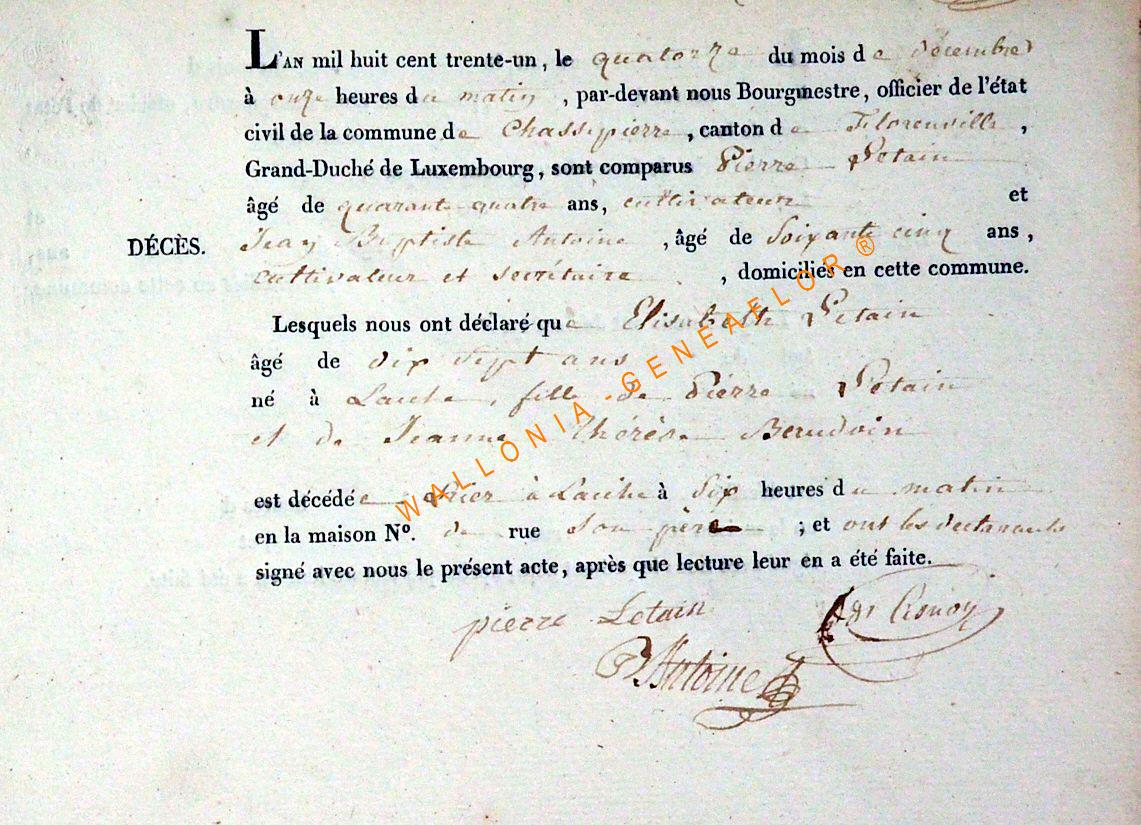 L'AN mil huit cent trente-un, le quatorze du mois de décembre
à onze heures du matin, par-devant nous Bourgmestre, officier de l'état
civil de la commune de Chassepierre, canton de Florenville,
Grand-Duché de Luxembourg, sont comparus Pierre Letain
âgé de quarante quatre ans, cultivateur et
DÉCÈS. Jean Baptiste Antoine, âgé de Soixante cinq ans,
cultivateur et secrétaire, domiciliés en cette commune.
Lesquels nous ont déclaré que Elisabeth Letain
âgé de dix sept ans
né à Laiche, fille de Pierre Letain
et de Jeanne Thérèse Beaudoin
est décédée hier à Laiche à Six heures du matin
en la maison N°. de rue Son père ; et ont les déclarants
signé avec nous le présent acte, après que lecture leur en a été faite.
pierre Letain
Antoine
WALLONIA - GENEAFLOR ®